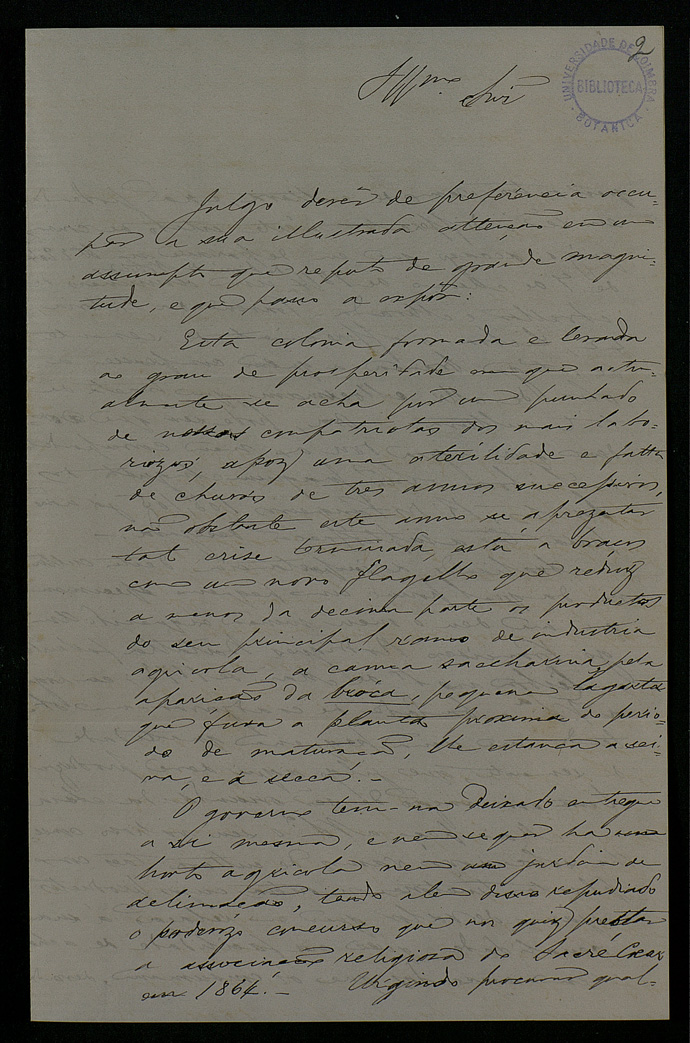 2
UNIVERSIDADE DE COIMBRA
BIBLIOTECA
BOTANICA
Illmo Snr
Julgo dever de preferencia occu-
par a sua illustrada attenção em um
assumpto que reputo de grande magni-
tude, e que passo a expôr:
Esta colonia formada e levada
ao grau de prosperidade em que actu-
almente se acha por um punhado
de nossos compatriotas dos mais labo-
riozos, apoz uma esterilidade e falta
de chuvas de tres annos successivos,
não obstante este anno se aprezentar
tal crise terminada, está a braços
com um novo flagello que reduz
a menos da decima parte os productos
do seu principal ramo de industria
agricola, a canna saccharina, pela
aparição da bróca, pequena lagarta
que fura a planta proxima do perio-
do de maturação, lhe estanca a sei-
va, e a secca. -
O governo tem-na deixado entregue
a si mesma, e nem sequer ha um
horto agricola nem um jardim de
aclimação, tendo alem disso repudiado
o poderozo concurso que nos quiz prestar
a associação religiosa do Sacré Coeur
em 1864. - Urgindo procurar qual-